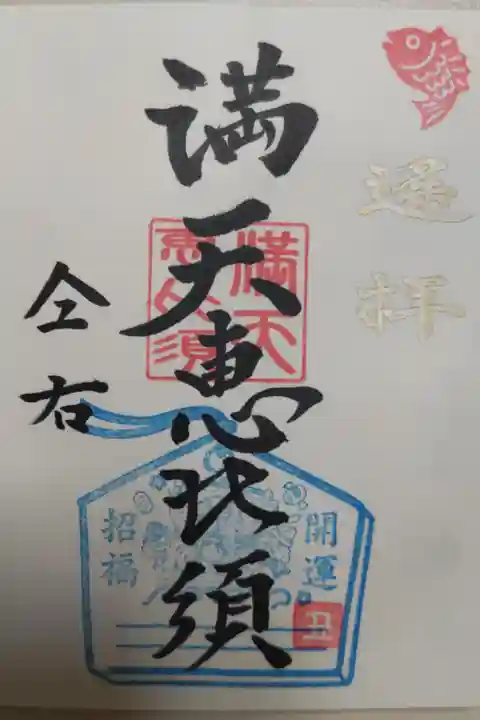 遥拝
満天恵比須
満天
恵比須
仝右
開運
招福
丑